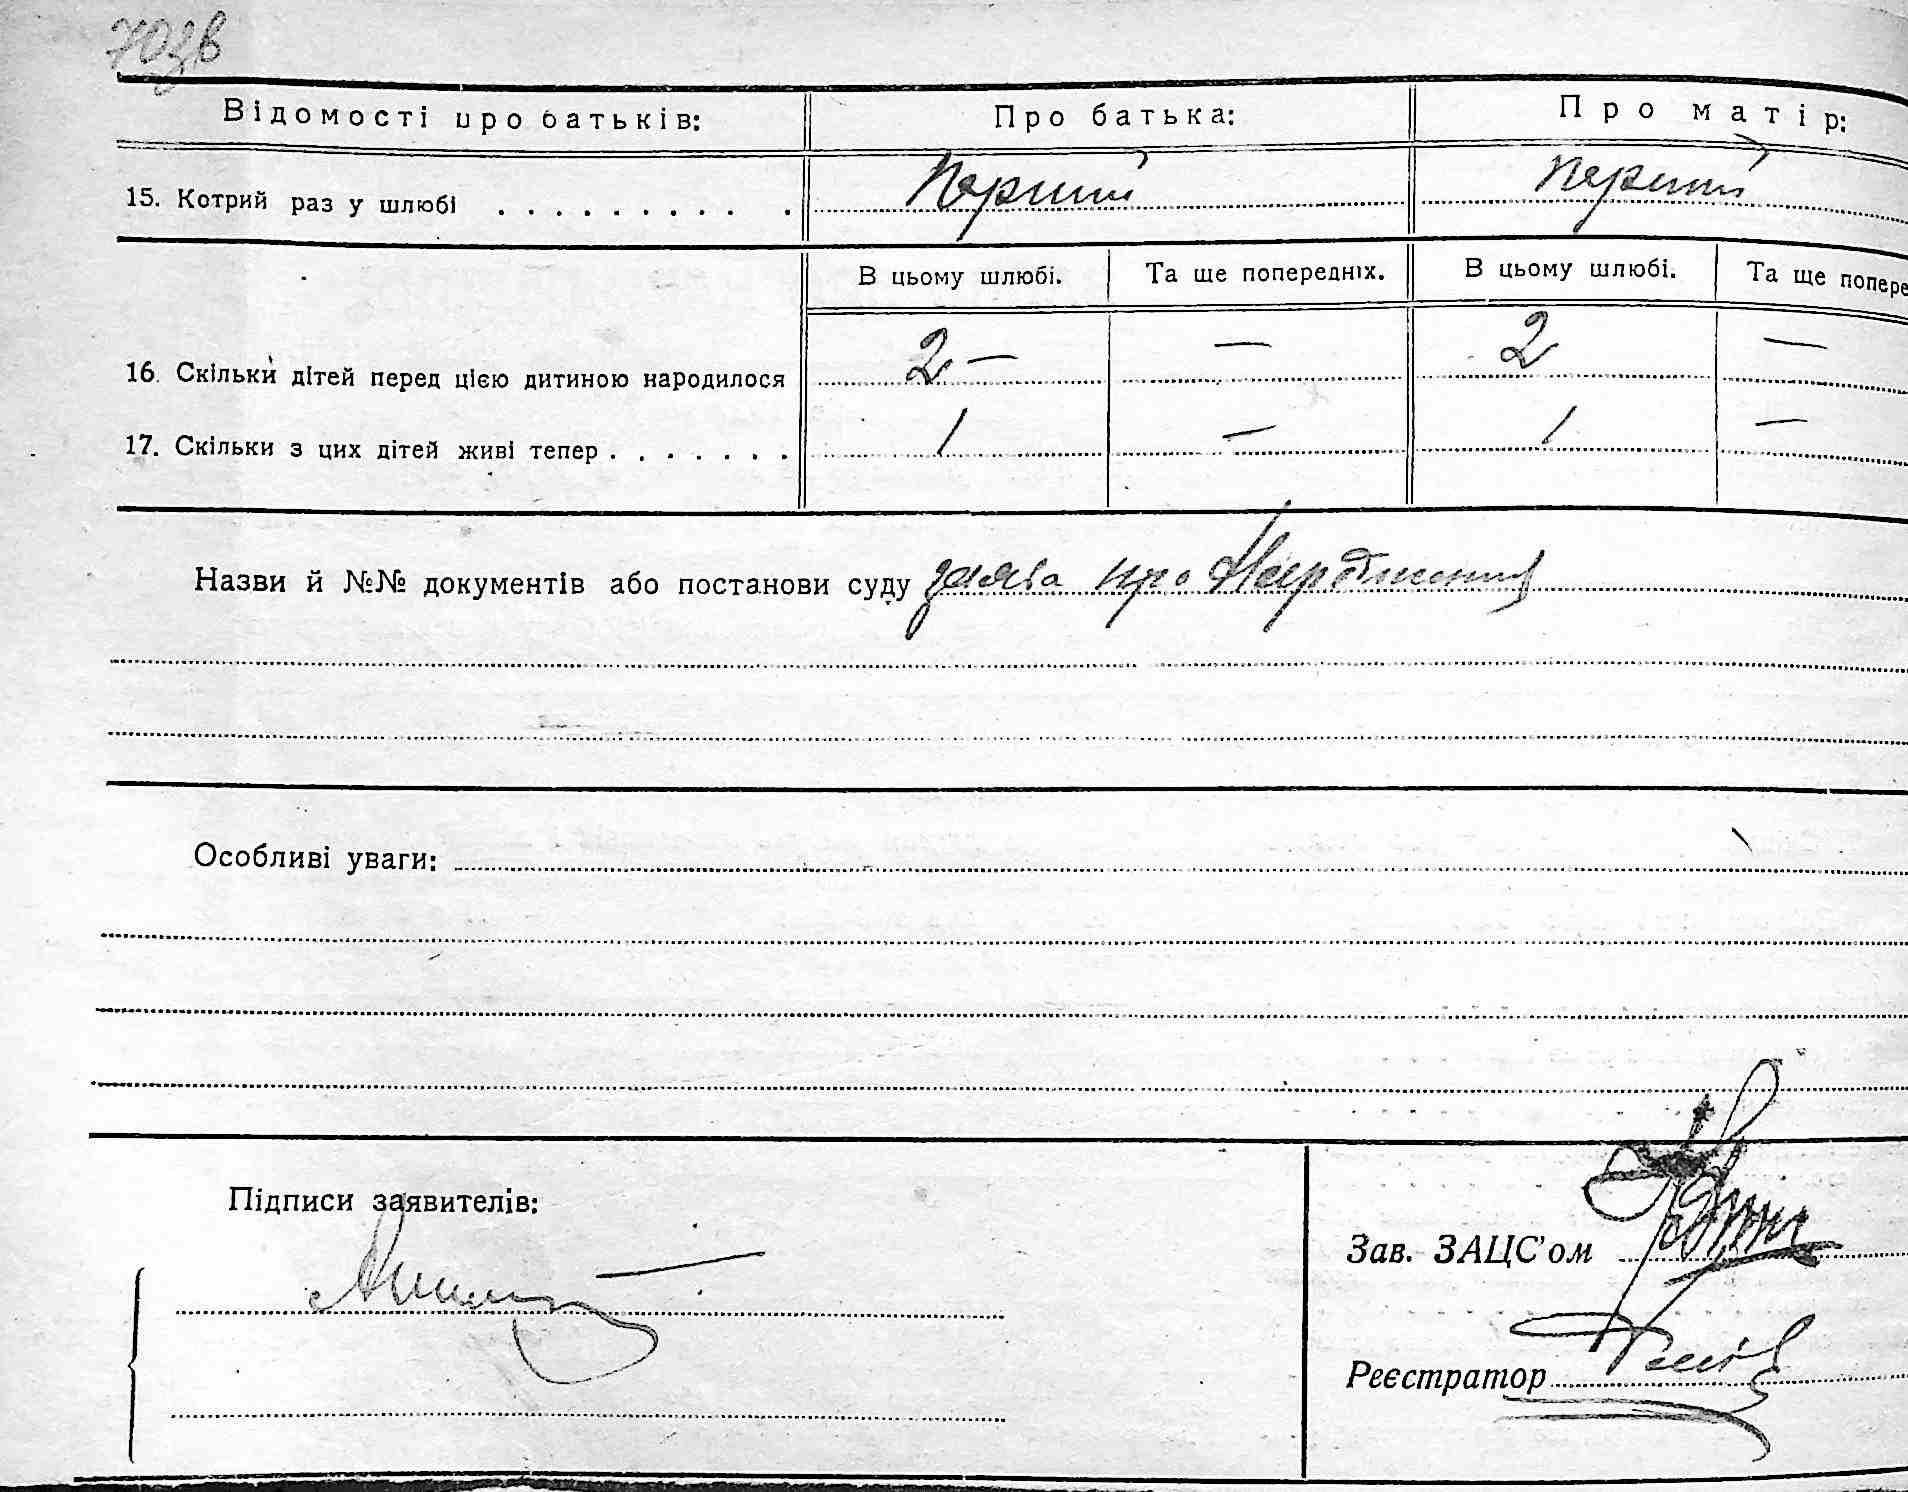 70зв
Відомості про батьків: Про батька: Про матір:
15. Котрий раз у шлюбі . . . . . . . . . . . Перший Перший
В цьому шлюбі. Та ще попередніх. В цьому шлюбі. Та ще попере
16. Скільки дітей перед цією дитиною народилося 2 — — 2 —
17. Скільки з цих дітей живі тепер . . . . . . . 1 — 1 —
Назви й №№ документів або постанови суду заява про Народження
Особливі уваги:
Підписи заявителів:
Зав. ЗАЦС’ом
Реєстратор